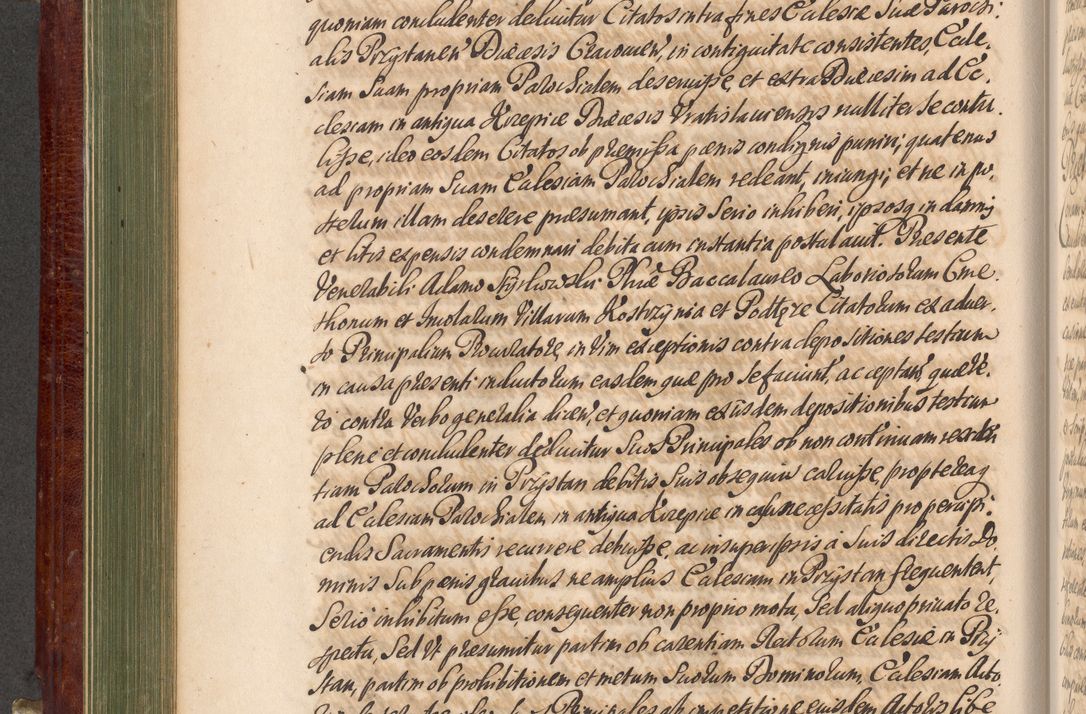 quoniam concludenter deducitur Citatos intra fines Ecclesiæ Suæ Parochi:
alis Przystanen' Diæcesis Cracovien', in contiguitate consistentes, Eccle.
siam Suam propriam Parochialem deseruisse, et extra Diæcesim ad Ec,
clesiam in antiqua Krzepice Diæcesis Vratislaviensis nulliter se contu,
lisse, ideo eosdem Citatos ob præmissa pænis condignis puniri, quatenus
ad propriam Suam Ecclesiam Parochialem redeant, iniungi, et ne in po,
sterum illam deserere præsumant, ipsis Serio inhiberi, ipsosq in damnis
et litis expensis condemnari debita cum instantia postulavit. Præsente
Venerabili Adamo Phiæ Baccalaureo Laboriosorum Cme,
thonum et Inolarum Villarum Kostrzynia et Podłęze Citatorum ex adver,
so Principalium Procuratore, in vim exceptionis contra depositiones testium
in causa præsenti inductorum easdem quæ pro se faciunt, acceptan', quæ ve,
ro contra Verbo generalia dicen', et quoniam ex iisdem depositionibus testium
plene et concludenter deducitur Suos Principales ob non continuam residen
tiam Parochorum in Przystan debitis Suis obsequiis caruisse, proptereaq
ad Ecclesiam Parochialem in antiqua Krzepice in casu necessitatis pro percipi:
endis Sacramentis recurrere debuisse, ac insuper ipsis a Suis directis Do
minis Sub pænis gravibus ne amplius Ecclesiam in Przystan frequentent,
Serio inhibitum esse, consequenter non proprio motu, Sed aliquo privato re,
spectu, Sed ut præsumitur partim ob carentiam Rectorum Ecclesiæ in Przy
stan, partim ob prohibitionem et metum Suorum Dominorum, Ecclesiam Acto
Principales ob impetitione eiusdem Actoris libe